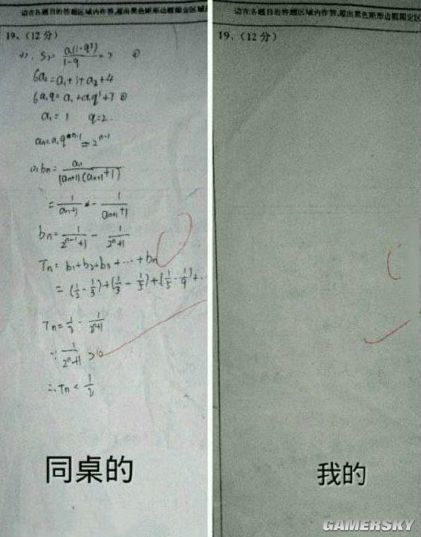 请在各题目的答题区域内作答,超出黑色矩形边框限定区域
19、(12分)
S₃= a₁(1-q³)/1-q =7 ①
6a₂=a₁+3+a₃+4
6a₁q=a₁+a₁q²+7 ②
a₁=1 q=2
=2ⁿ⁻¹
bn= an/(an+1)(an+1+1)
= 1/an+1 - 1/an+1+1
bn= 1/2ⁿ⁻¹+1 - 1/2ⁿ+1
Tn=b₁+b₂+b₃+⋯+bn
=(1/2-1/3)+(1/3-1/5)+(1/5-1/9)+..
Tn=1/2-1/2ⁿ+1
∵ 1/2ⁿ+1 >0
∴Tn<1/2
同桌的
请在各题目的答题区域内作答,超出黑色矩形边框限定区
19、(12分)
我的
GAMERSKY